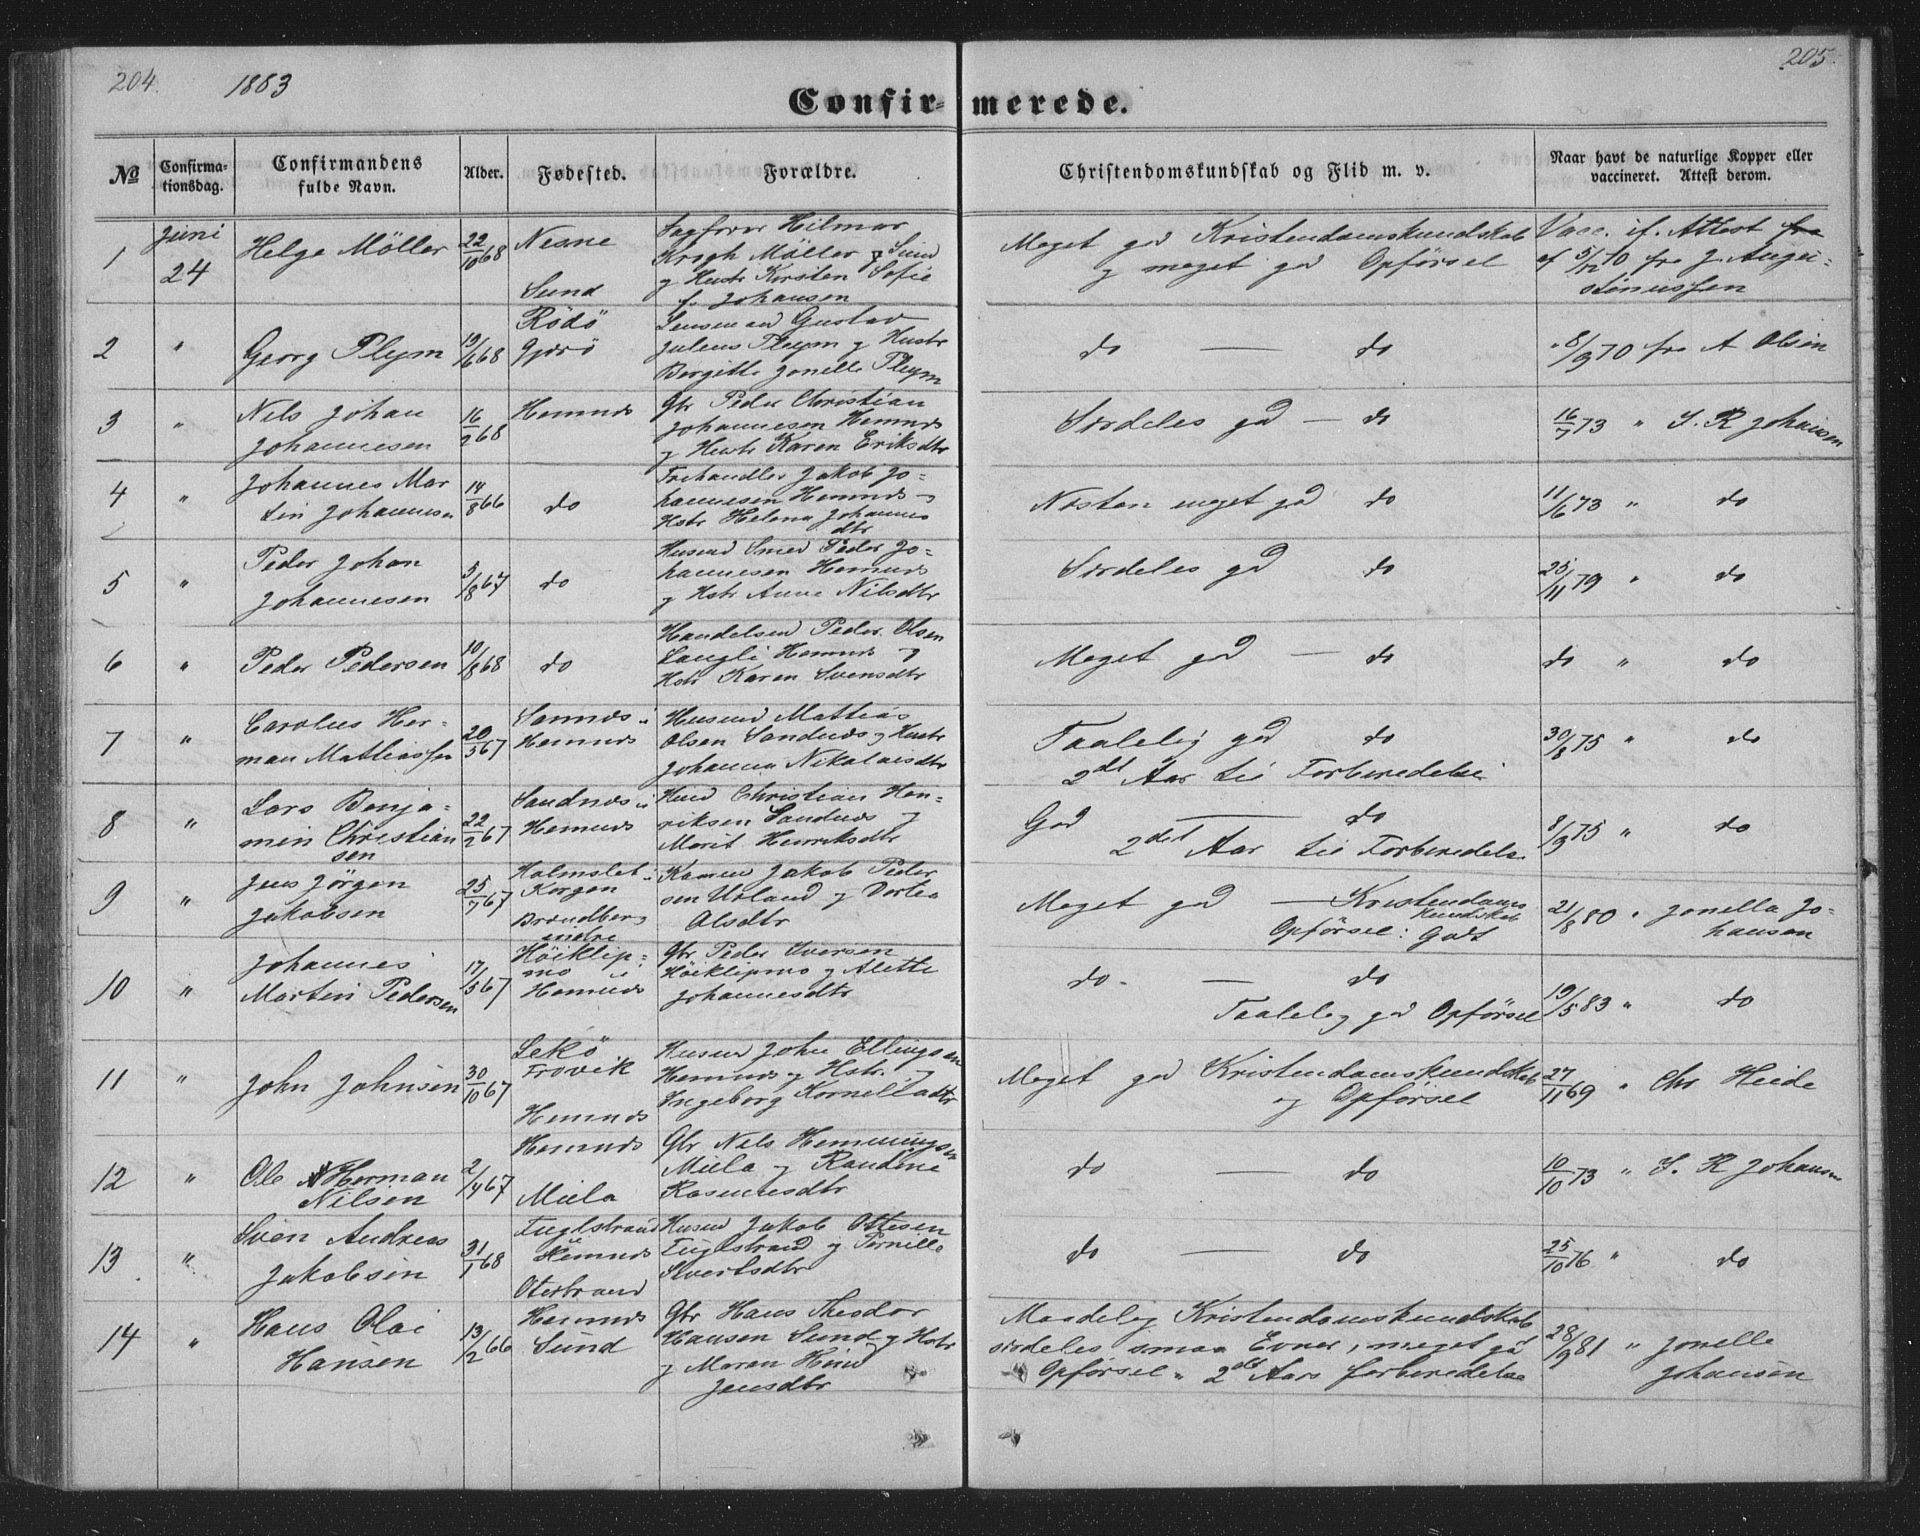 204
1883
205.
Confir- merede.
№
Confirma-
tionsdag.
Confirmandens
fulde Navn.
Alder.
Fødested.
Forældre.
Christendomskundskab og Flid m. v.
Naar havt de naturlige Kopper eller
vaccineret. Attest derom.
1
Juni
24
Helge Möller
22/10 68
Nesne
Sund
Sagfører Hilmar
Krogh Möller, Sund
og Hustr Kirsten Sofie
f. Johansen
Meget god Kristendomskundskab
og meget god Opførsel
Vacc. if. Attest fra
af 5/12 70 fra J. Augu-
stinussen
2
"
Georg Pleym
19/6 68
Rödö
Gjerö
Lensmand Gustav
Julius Pleym og Hustr
Bergitte Jonelle Pleym
do — do
" 8/9 70 fra A Olsen
3
"
Nils Johan
Johannesen
16/2 68
Hemnes
Gbr Peder Christian
Johannesen Hemnes
og Hustr Karen Eriksdtr
Særdeles god — do
16/7 73 " S. R Johansen
4
"
Johannes Mar
tin Johannesen
14/8 66
do
Frihandler Jakob Jo-
hannesen Hemnes og
Hstr Helena Johannes
dtr
Næsten meget god do
11/6 73 " do
5
"
Peder Johan
Johannesen
5/8 67
do
Husmd Smed Peder Jo-
hannesen Hemnes
og Hstr Anne Nilsdtr
Særdeles god do
25/11 79 " do
6
"
Peder Pedersen
10/8 68
do
Handelsmd Peder Olsen
Langli Hemnes og
Hstr Karen Svensdtr
Meget god — do
do " do
7
"
Carolus Her-
man Mathiassen
20/5 67
Sannes i
Hemnes
Husmd Mattias
Olsen Sandnes og Hustr
Johanna Nikolaisdtr
Taalelig god do
2det Aar til Forberedelse
30/8 75 " do
8
"
Lars Benja-
min Christian
sen
22/2 67
Sandnes i
Hemnes
Husmd Christian Hen-
riksen Sandnes og
Marit Henriksdtr
God — do
2det Aar til Forberedelse
8/9 75 " do
9
"
Jens Jörgen
Jakobsen
25/7 67
Holmslet i
Korgen
Brændberg
indre
Jakob Peder
sen og Dortea
Olsdtr
Meget god — Kristendoms
kundskab
Opførsel: Godt
21/8 80 " Jonella Jo-
hansen
10
"
Johannes
Martin Pedersen
17/5 67
Höiklip-
mo i
Hemnes
Gbr Peder Iversen
Höiklipmo og Alette
Johannesdtr
do. — do
Taalelig god Opførsel
19/5 83 " do
11
"
John Johnsen
30/10 67
Lekö
Frovik
Hemnes
Husmd John Ellingsen
Hemnes og Hstr.
Ingeborg Korneliadtr
Meget god Kristendomskundskab
og Opførsel
27/11 69 " Chr Heide
12
"
Ole Herman
Nilsen
2/4 67
Hemnes
Miela
Gbr Nils Hemmingsen
Miela og Randine
Rasmusdtr
do — do
10/10 73 " S. R Johansen
13
"
Sven Andreas
Jakobsen
31/1 68
Fuglstrand
i Hemnes
Oterbrand
Husmd Jakob Ottesen
Fuglstrand og Pernille
Sivertsdtr
do — do
25/10 76 " do
14
"
Hans Olai
Hansen
13/2 66
Hemnes
Sund
Gbr Hans Theodor
Hansen Sund og Hstr
og Maren
Jensdtr
Maadelig Kristendomskundskab
særdeles smaa Evner, meget god
Opførsel. 2det Aars forberedelse
28/9 81 " Jonelle
Johansen